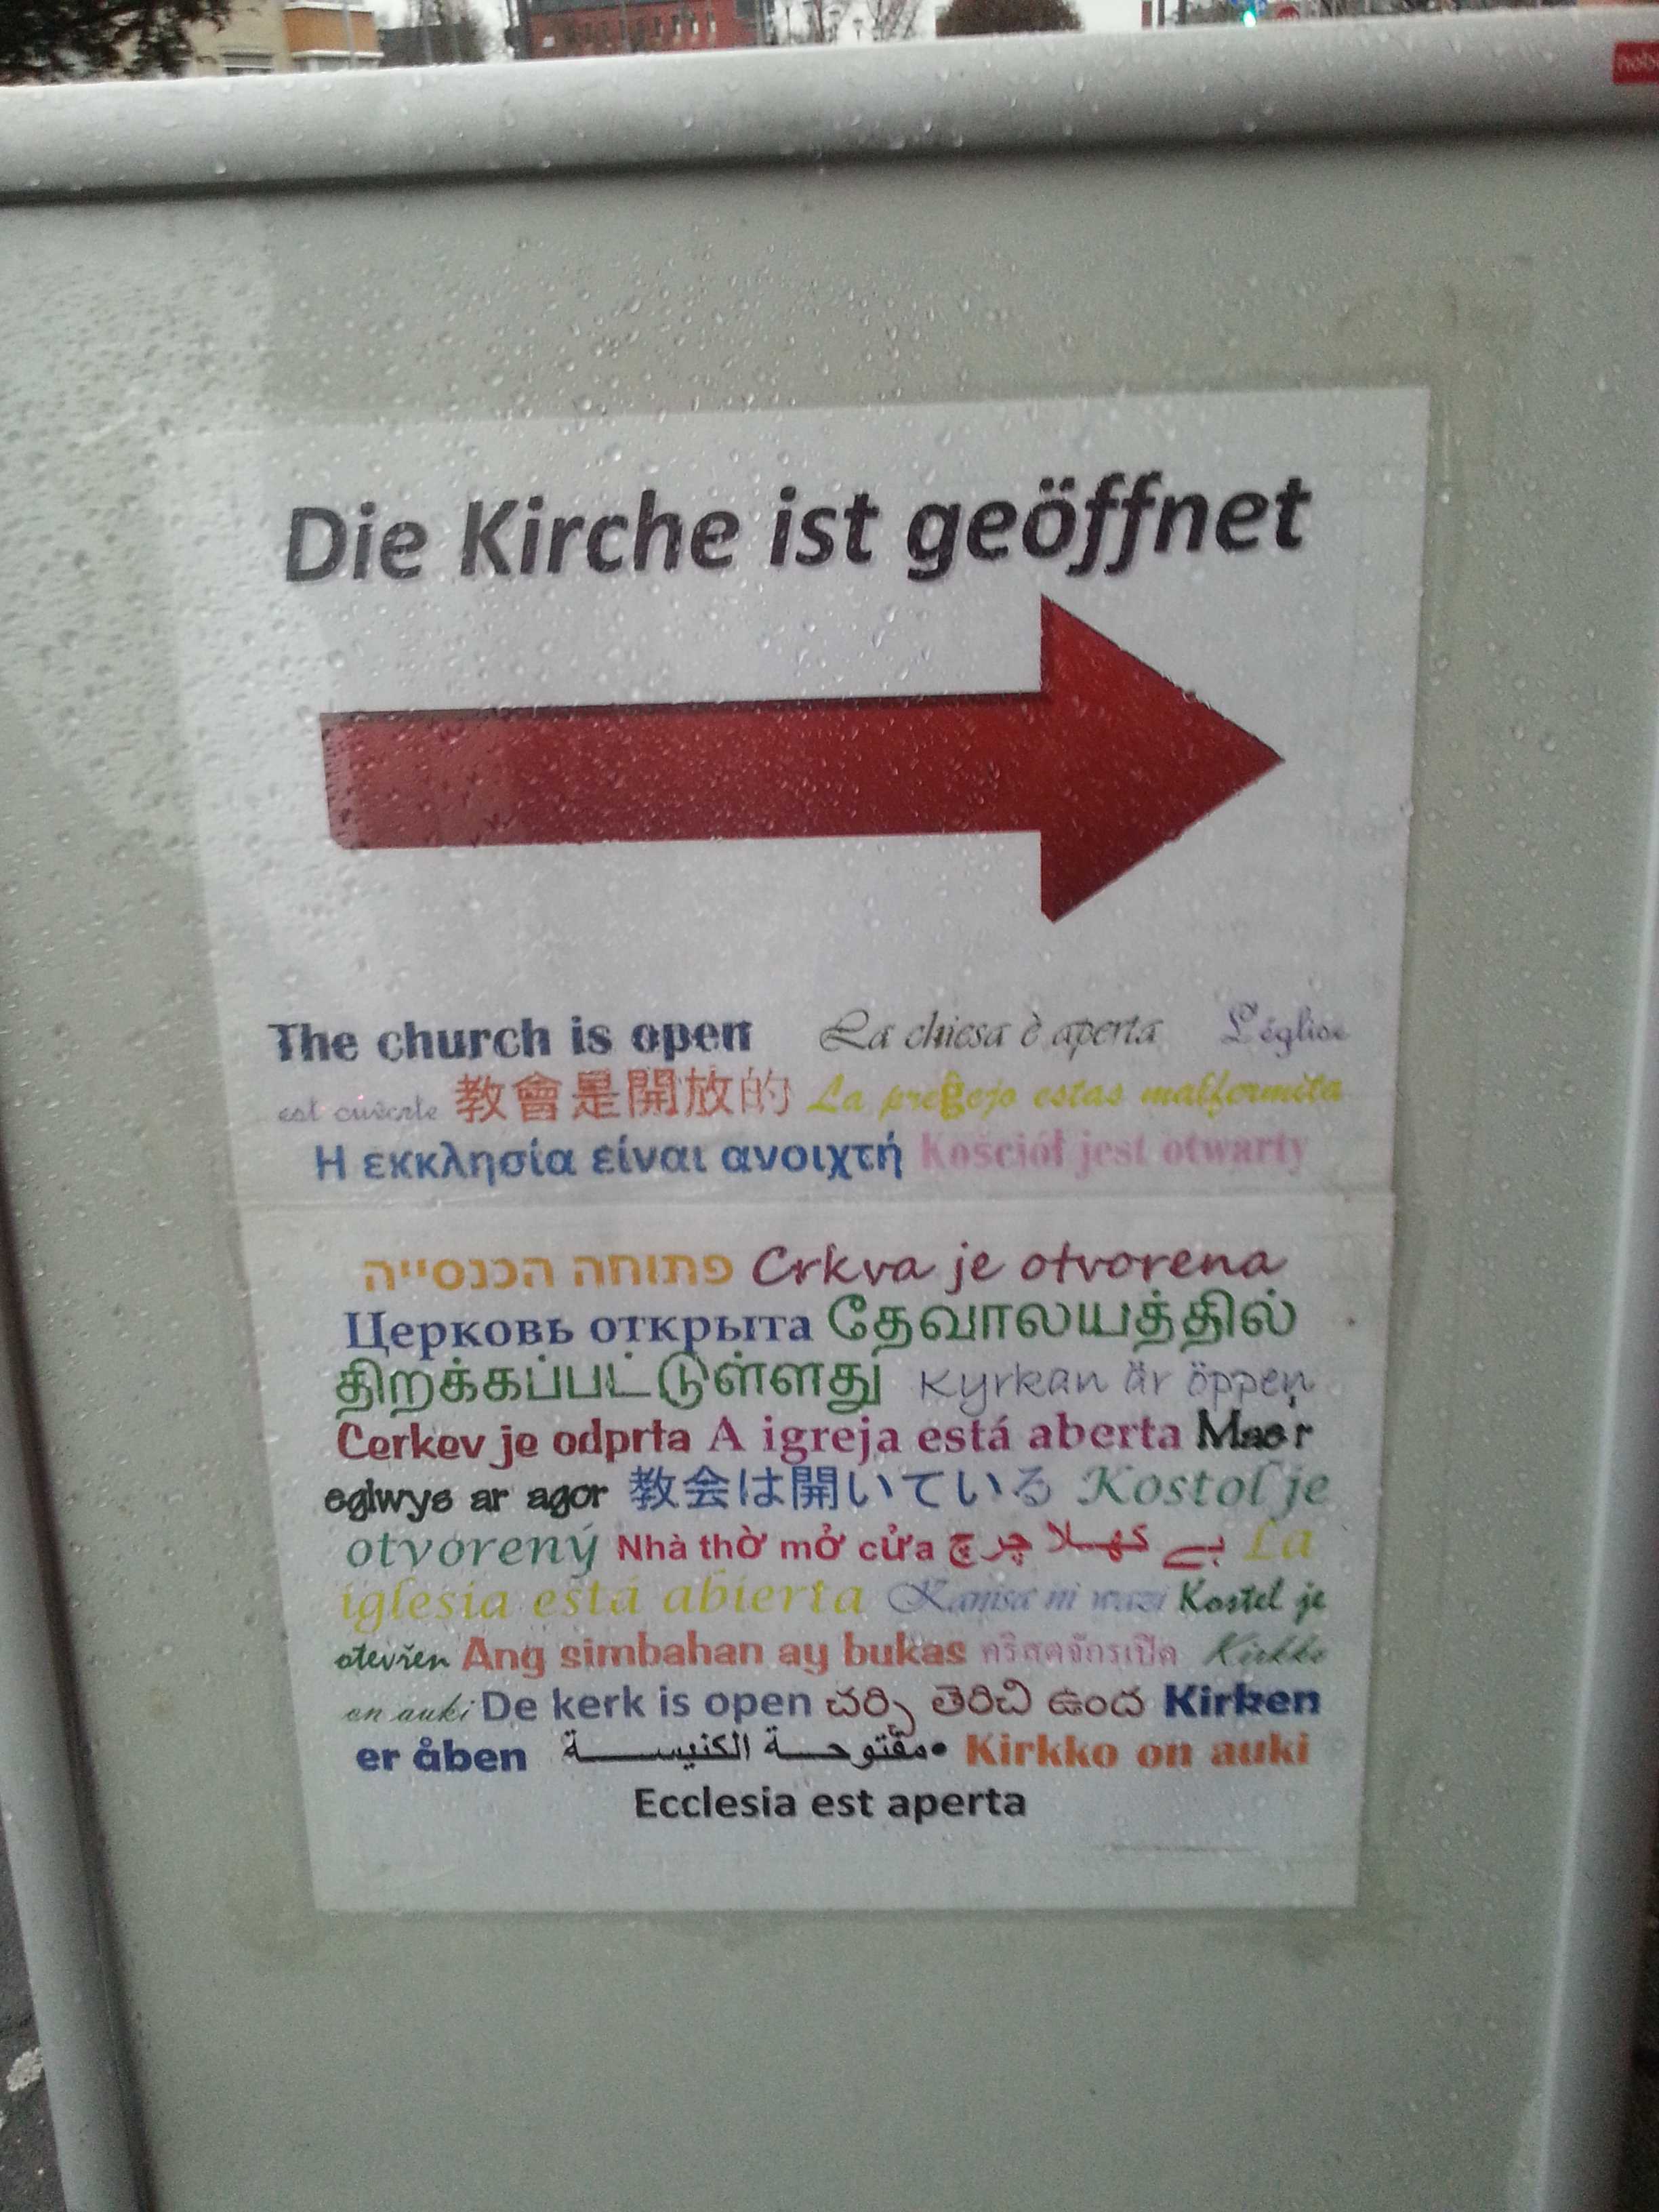 Die Kirche ist geöffnet
The church is open La chiesa è aperta L'église
est ouverte 教會是開放的 La preĝejo estas malfermita
Η εκκλησία είναι ανοιχτή Kościół jest otwarty
פתוחה הכנסייה Crkva je otvorena
Церковь открыта தேவாலயத்தில்
திறக்கப்பட்டுள்ளது Kyrkan är öppen
Cerkev je odprta A igreja está aberta Mae'r
eglwys ar agor 教会は開いている Kostol je
otvorený Nhà thờ mở cửa چرچ کھلا ہے La
iglesia está abierta Kanisa ni wazi Kostel je
otevřen Ang simbahan ay bukas คริสตจักรเปิด Kirkko
on auki De kerk is open చర్చి తెరిచి ఉంది Kirken
er åben مفتوحة الكنيسة Kirkko on auki
Ecclesia est aperta